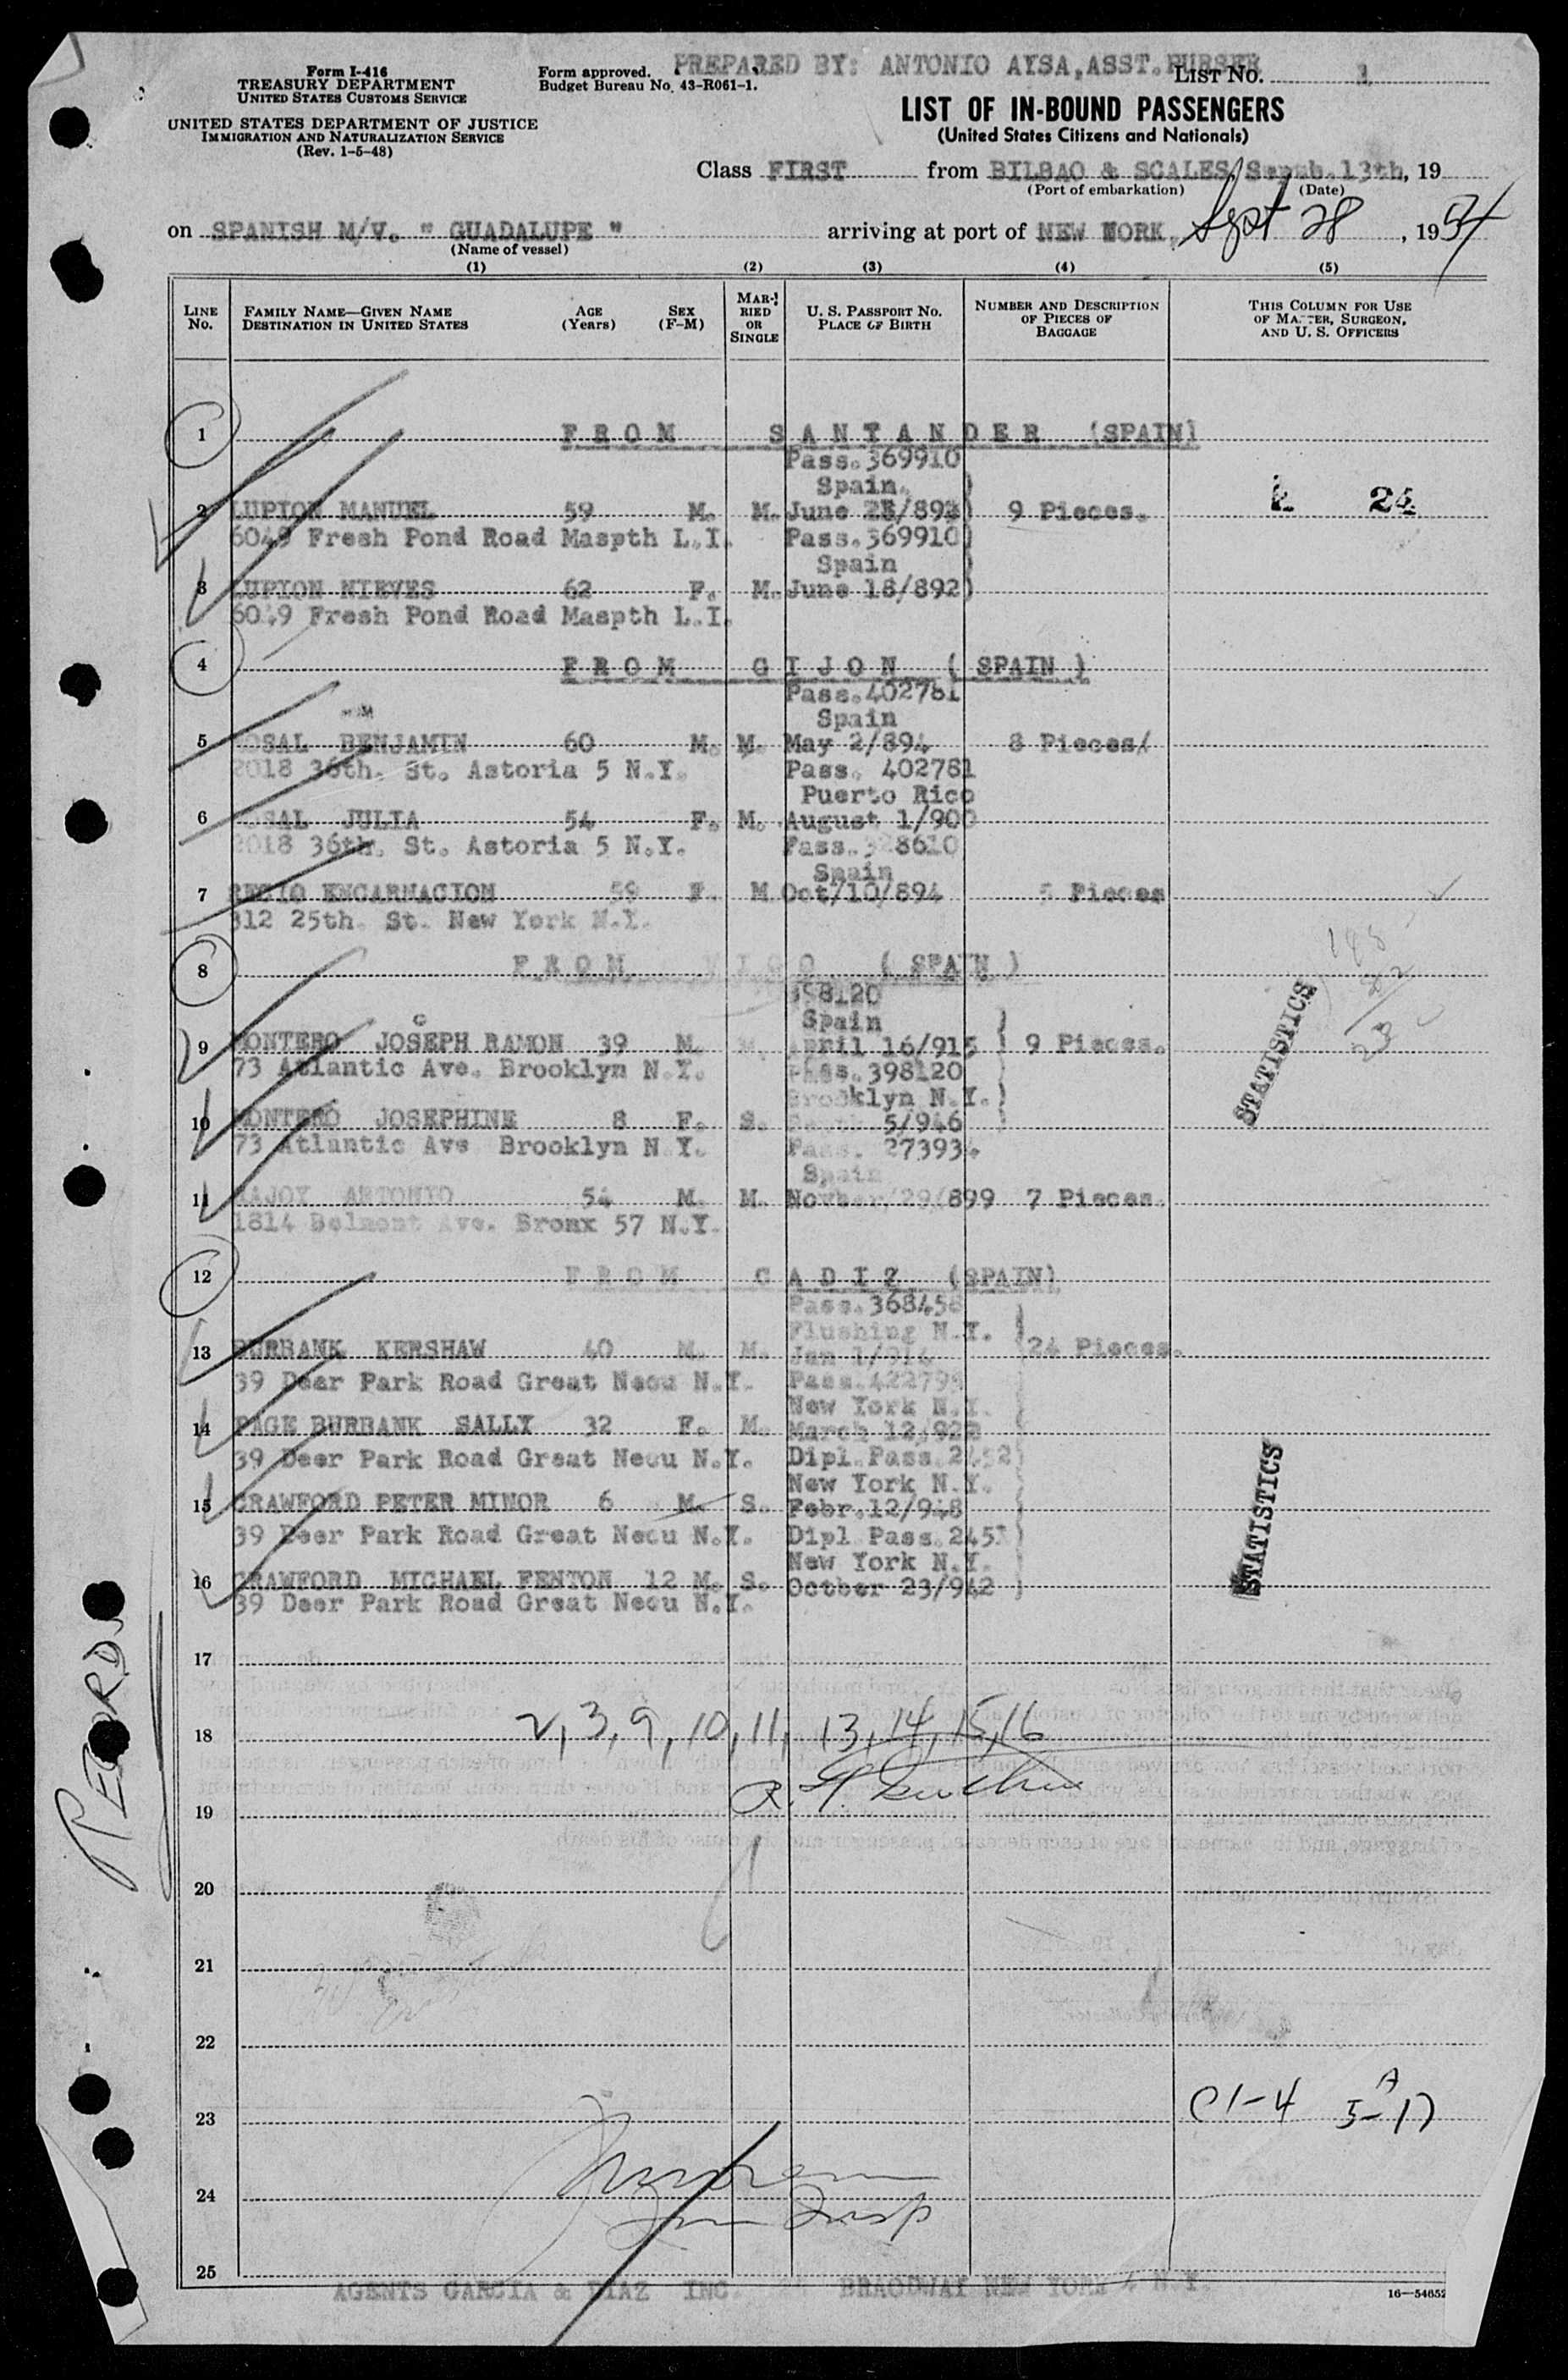 PREPARED BY: ANTONIO AYSA, ASST. PURSER
Form I-416
TREASURY DEPARTMENT
UNITED STATES CUSTOMS SERVICE
UNITED STATES DEPARTMENT OF JUSTICE
IMMIGRATION AND NATURALIZATION SERVICE
(Rev. 1-5-48)
Form approved.
Budget Bureau No. 43-R061-1.
LIST No. 1
LIST OF IN-BOUND PASSENGERS
(United States Citizens and Nationals)
Class FIRST from BILBAO & SCALES, 13th, 19
(Port of embarkation) (Date)
on SPANISH M/V. " GUADALUPE " arriving at port of NEW YORK, Sept 28, 1954
(Name of vessel)
(1) (2) (3) (4) (5)
LINE No.
FAMILY NAME—GIVEN NAME
DESTINATION IN UNITED STATES
AGE (Years)
SEX (F-M)
MARRIED OR SINGLE
U. S. PASSPORT No.
PLACE OF BIRTH
NUMBER AND DESCRIPTION OF PIECES OF BAGGAGE
THIS COLUMN FOR USE OF MASTER, SURGEON, AND U. S. OFFICERS
1 FROM SANTANDER (SPAIN)
Pass. 369910
Spain.
2 LUPION MANUEL 59 M. M. June /892) 9 Pieces. 24
6049 Fresh Pond Road Maspth L.I. Pass. 369910)
Spain )
3 LUPION NIEVES 62 F. M. June 18/892)
6049 Fresh Pond Road Maspth L.I.
4 FROM GIJON ( SPAIN )
Pass. 402781
Spain
5 ROSAL BENJAMIN 60 M. M. May 2/894 8 Pieces/
2018 36th. St. Astoria 5 N.Y. Pass. 402781
Puerto Rico
6 ROSAL JULIA 54 F. M. August 1/900
2018 36th. St. Astoria 5 N.Y. Pass. 328610
Spain
7 ENCARNACION 59 F. M Oct/10/894 5 Pieces
312 25th. St. New York N.Y.
8 FROM VIGO ( SPAIN )
398120
Spain )
9 MONTERO JOSEPH RAMON 39 M. M. April 16/915 ) 9 Pieces.
73 Atlantic Ave. Brooklyn N.Y. Pass. 398120
Brooklyn N.Y.)
10 MONTERO JOSEPHINE 8 F. S. 5/946 )
73 Atlantic Ave Brooklyn N.Y. Pass. 273934
Spain
11 RAJOY ANTONIO 54 M. M. Novber/29/899 7 Pieces.
1814 Belmont Ave. Bronx 57 N.Y.
12 FROM CADIZ (SPAIN)
Pass. 368456
Flushing N.Y. )
13 BURBANK KERSHAW 40 M. M. Jan 1/914 (24 Pieces.
39 Deer Park Road Great Necu N.Y. Pass. 422798
New York N.Y.
14 PAGE BURBANK SALLY 32 F. M. March 12/922
39 Deer Park Road Great Necu N.Y. Dipl. Pass. 2452)
New York N.Y.
15 CRAWFORD PETER MINOR 6 M. S. Febr. 12/948
39 Deer Park Road Great Necu N.Y. Dipl Pass. 2451)
New York N.Y.
16 CRAWFORD MICHAEL FENTON 12 M. S. Octber 23/942 )
39 Deer Park Road Great Necu N.Y.
STATISTICS
STATISTICS
17
18 2, 3, 9, 10, 11, 13, 14, 15, 16
19
20
21
22
23 C1-4 5-17
A
24
25
AGENTS GARCIA & DIAZ INC. BRAODWAY NEW YORK 4 N.Y.
16—54652